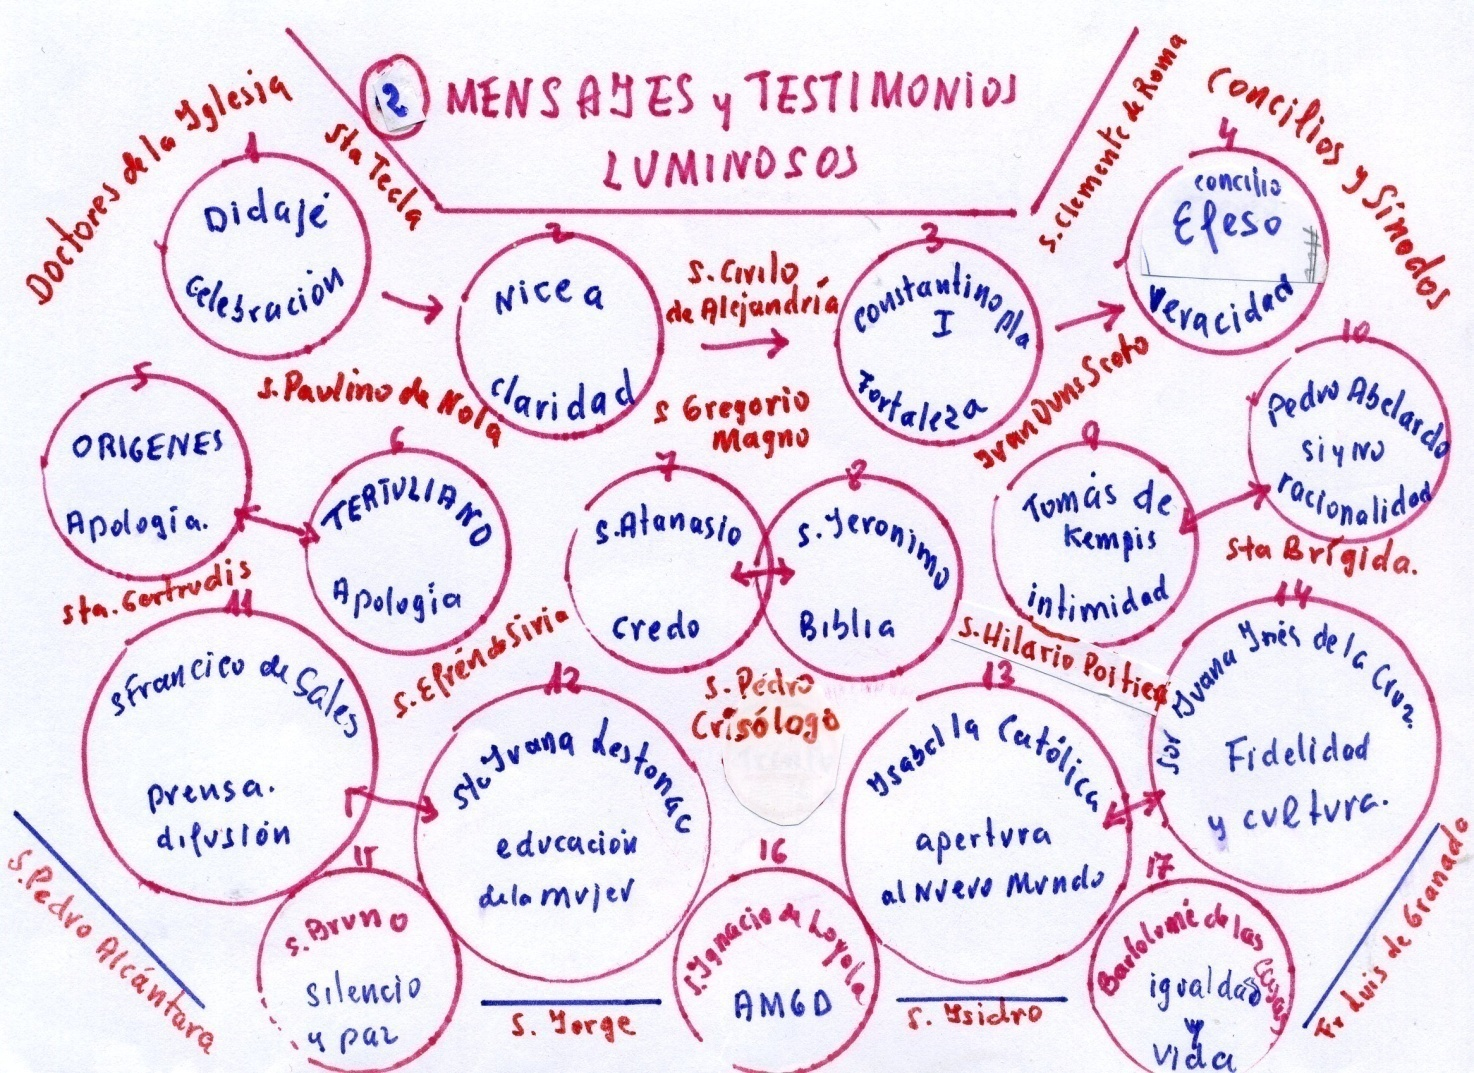 2 MENSAJES y TESTIMONIOS
LUMINOSOS
Doctores de la Yglesia
Sta Tecla
S. Clemente de Roma
Concilios y Sínodos
1
Didajé
Celebración
2
Nicea
Claridad
S. Cirilo
de Alejandría
3
Constantinopla
I
Fortaleza
4
concilio
Efeso
Veracidad
S. Paulino de Nola
S Gregorio
Magno
Juan Duns Scoto
5
ORIGENES
Apología.
6
TERTULIANO
Apología
7
S. Atanasio
Credo
8
S. Jeronimo
Biblia
9
Tomás de
Kempis
intimidad
10
Pedro Abelardo
si y no
racionalidad
Sta. Gertrudis
S. Efrén de Siria
S. Pedro
Crisólogo
S. Hilario Poitiers
Sta Brígida.
11
S Francico de Sales
prensa.
difusión
12
Sta Juana Lestonac
educación
de la mujer
13
Ysabel la Católica
apertura
al Nuevo Mundo
14
Sor Juana Ynés de la Cruz.
Fidelidad
y cultura.
S. Pedro Alcántara
15
S. Bruno
silencio
y paz
S. Jorge
16
S. Ygnacio de Loyola
AMGD
S. Ysidro
17
Bartolomé de las Casas
igualdad
y
vida
Fr Luis de Granada